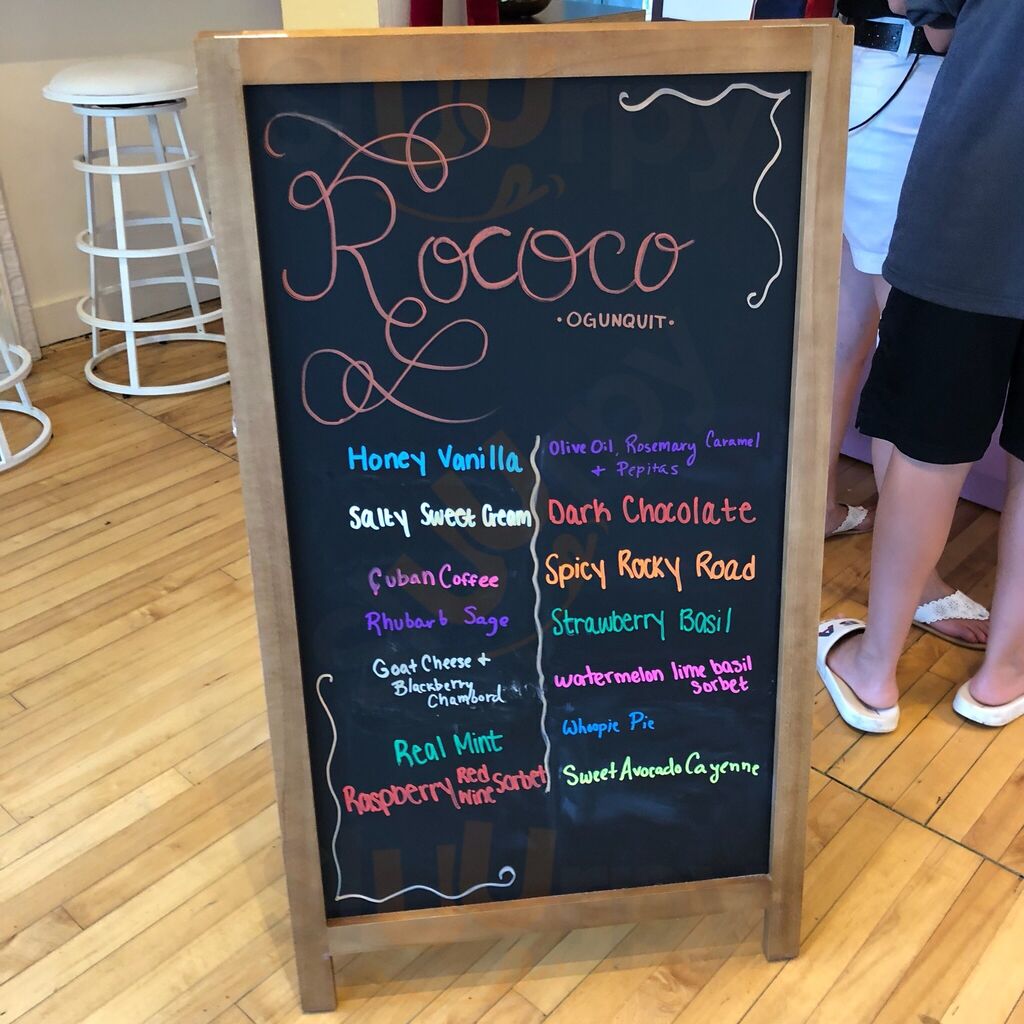 Rococo
·OGUNQUIT·
Honey Vanilla
Salty Sweet Cream
Cuban Coffee
Rhubarb Sage
Goat Cheese +
Blackberry
Chambord
Real Mint
Raspberry Red Wine Sorbet
Olive Oil, Rosemary Caramel
+ Pepitas
Dark Chocolate
Spicy Rocky Road
Strawberry Basil
watermelon lime basil
sorbet
Whoopie Pie
Sweet Avocado Cayenne